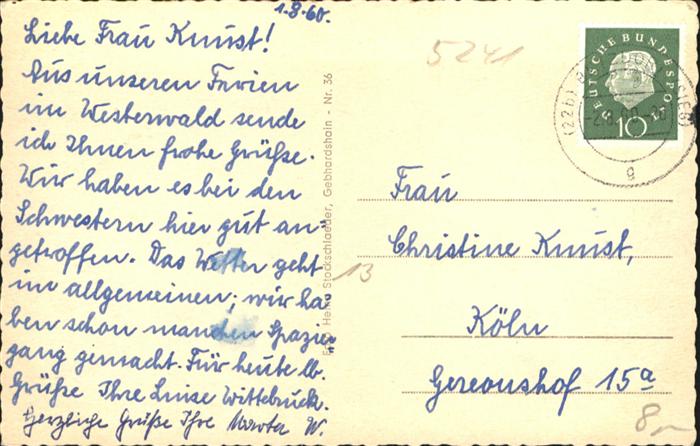 1.8.60.
Liebe Frau Knust!
Aus unseren Ferien
im Westerwald sende
ich Ihnen frohe Grüße.
Wir haben es bei den
Schwestern hier gut an-
getroffen. Das Wetter geht
im allgemeinen; wir ha-
ben schon manchen Spazier-
gang gemacht. Für heute lb.
Grüße Ihre Luise Wittebruck.
Herzliche Grüße Ihre Marta W.
Foto Heinz Stockschlaeder, Gebhardshain - Nr. 36
5241
13
DEUTSCHE BUNDESPOST
10
(22b)
-2.8.60
g
Frau
Christine Knust,
Köln
Gereonshof 15a
8,-